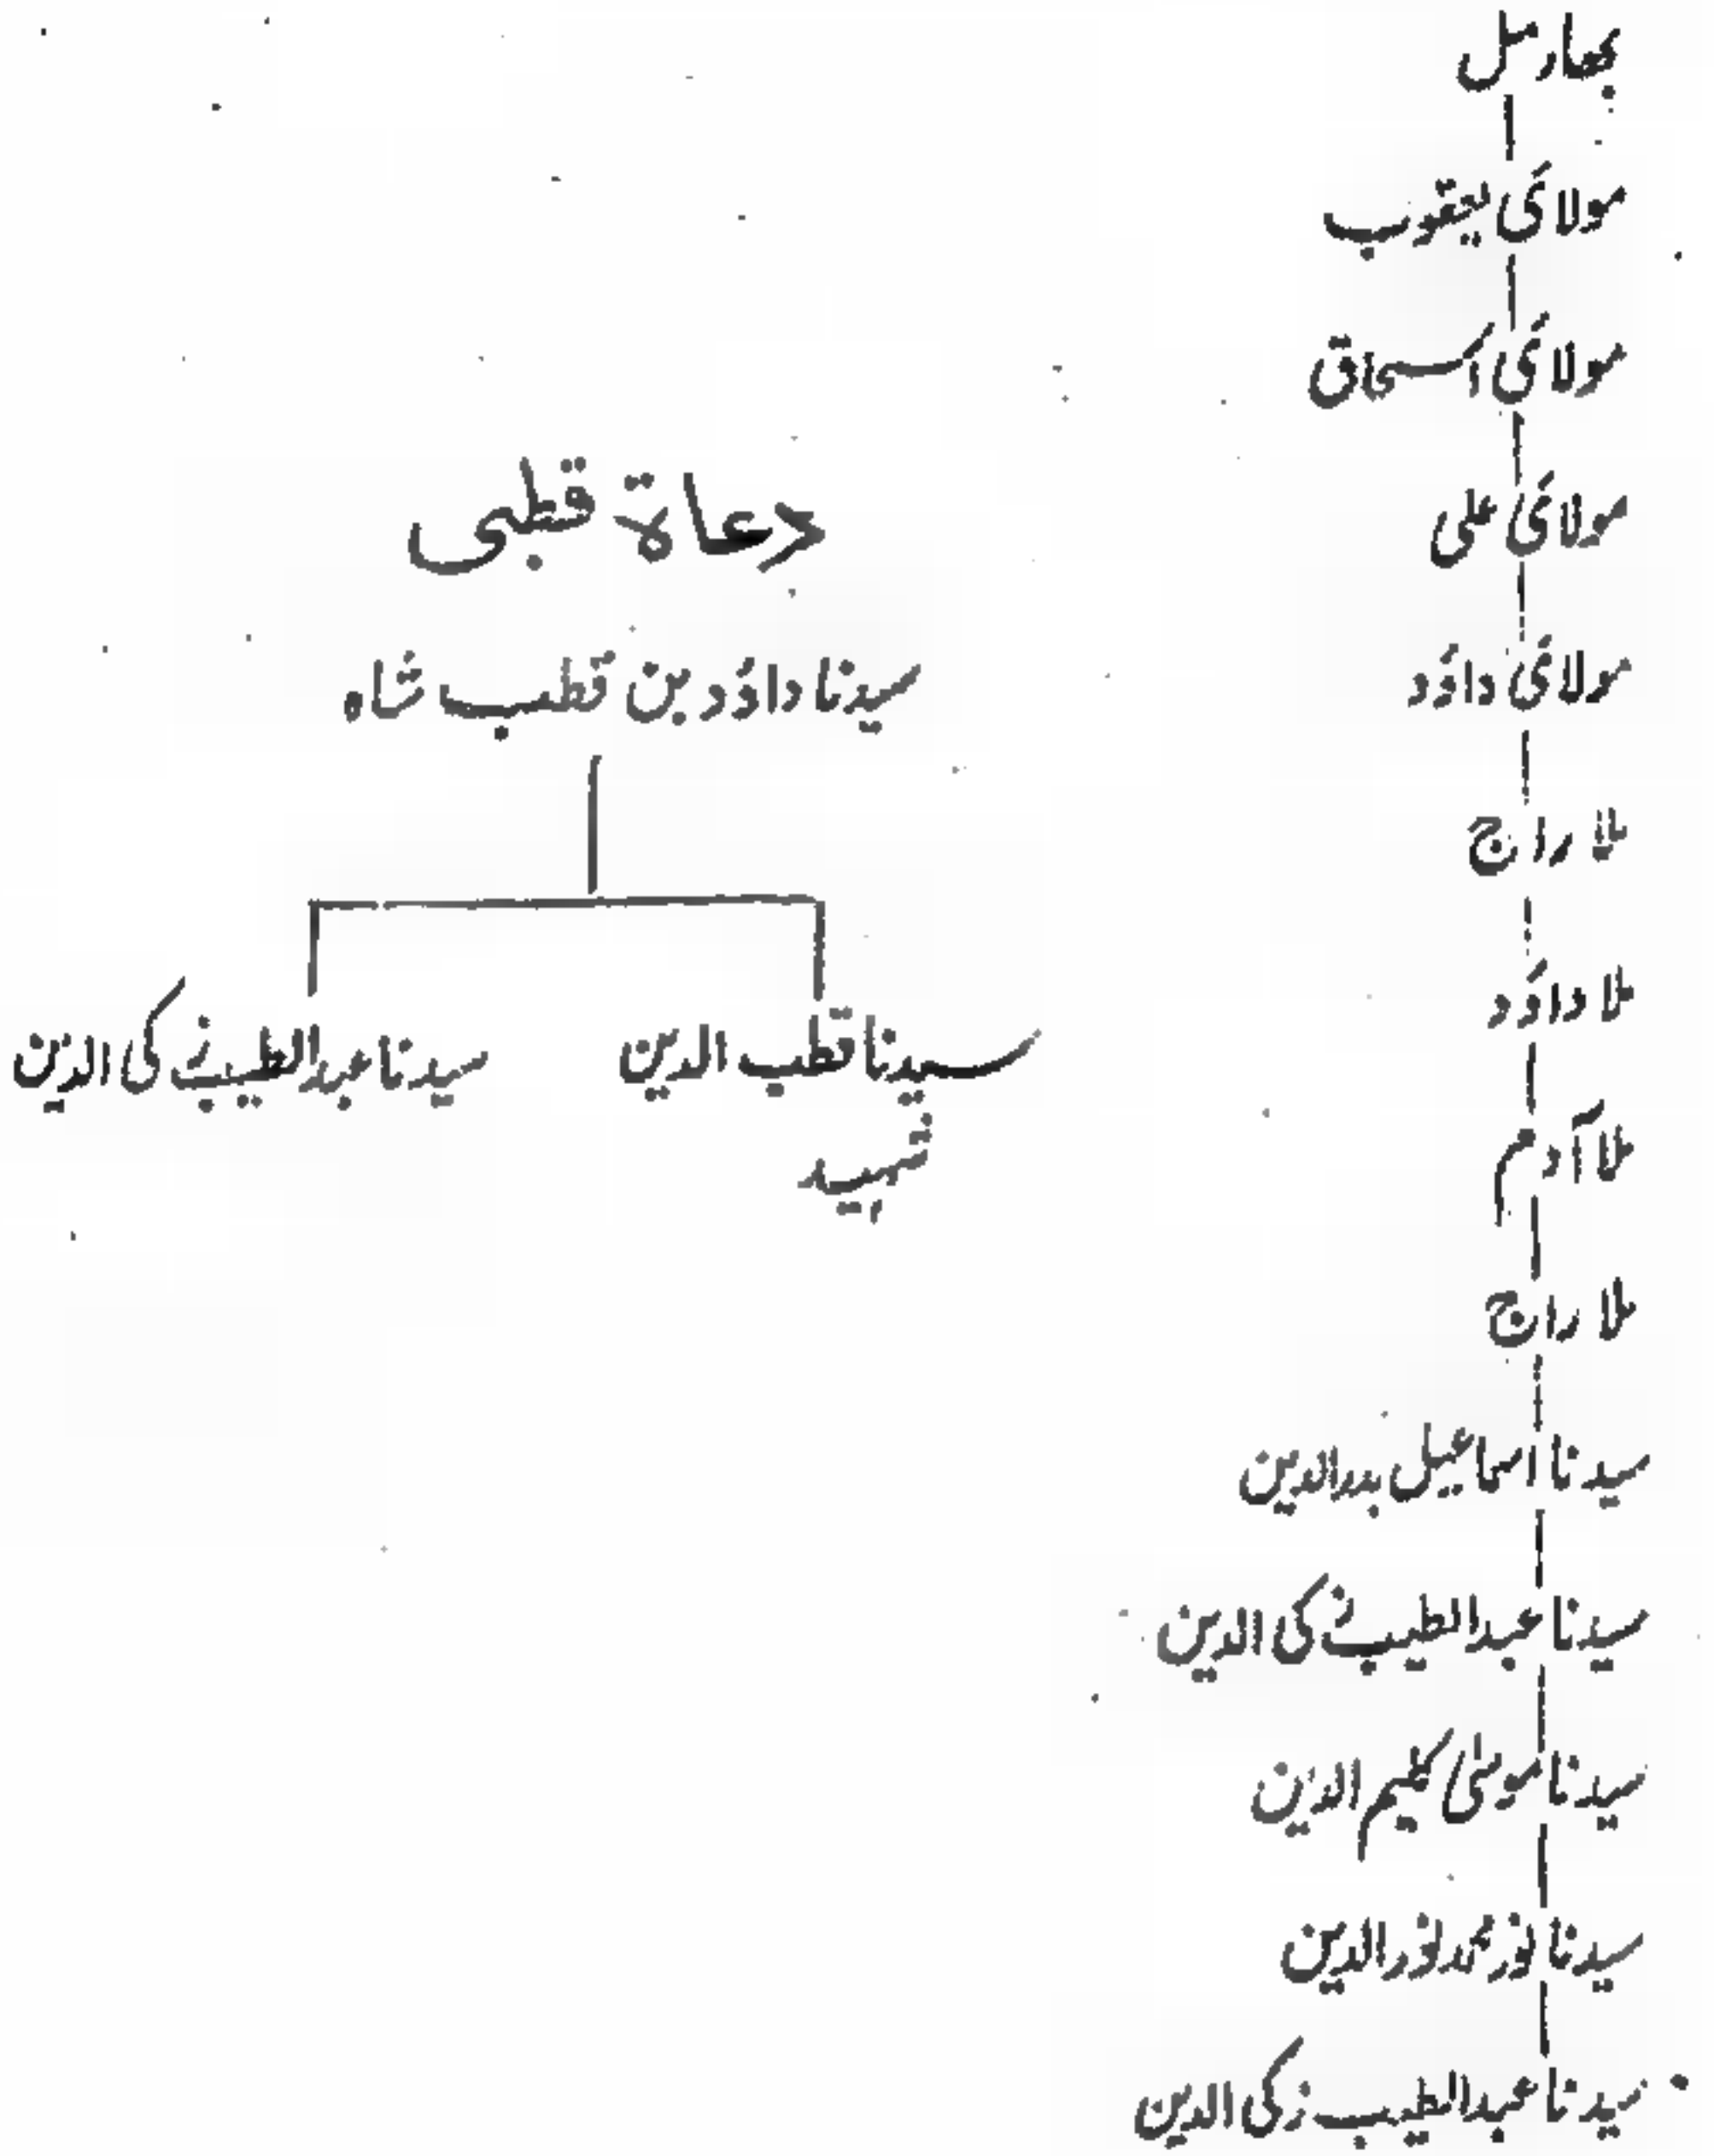 بھارمل
مولائی یعقوب
مولائی اسحاق
مولائی علی
مولائی داؤد
ملا راج
ملا داؤد
ملا آدم
ملا راج
سیدنا اسماعیل بدرالدین
سیدنا عبدالطیب زکی الدین
سیدنا موسیٰ کلیم الدین
سیدنا نور محمد نورالدین
سیدنا عبدالطیب زکی الدین
دعاۃ قطبی
سیدنا داؤد بن قطب شاہ
سیدنا قطب الدین
شہید
سیدنا عبدالطیب زکی الدین